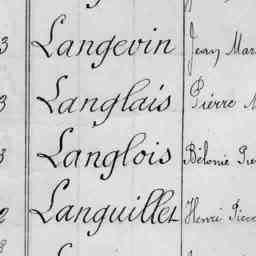 3 Langevin Jean Mar
3 Langlais Pierre M
3 Langlois Bélonie Pie
2 Languillet Henri Pierr